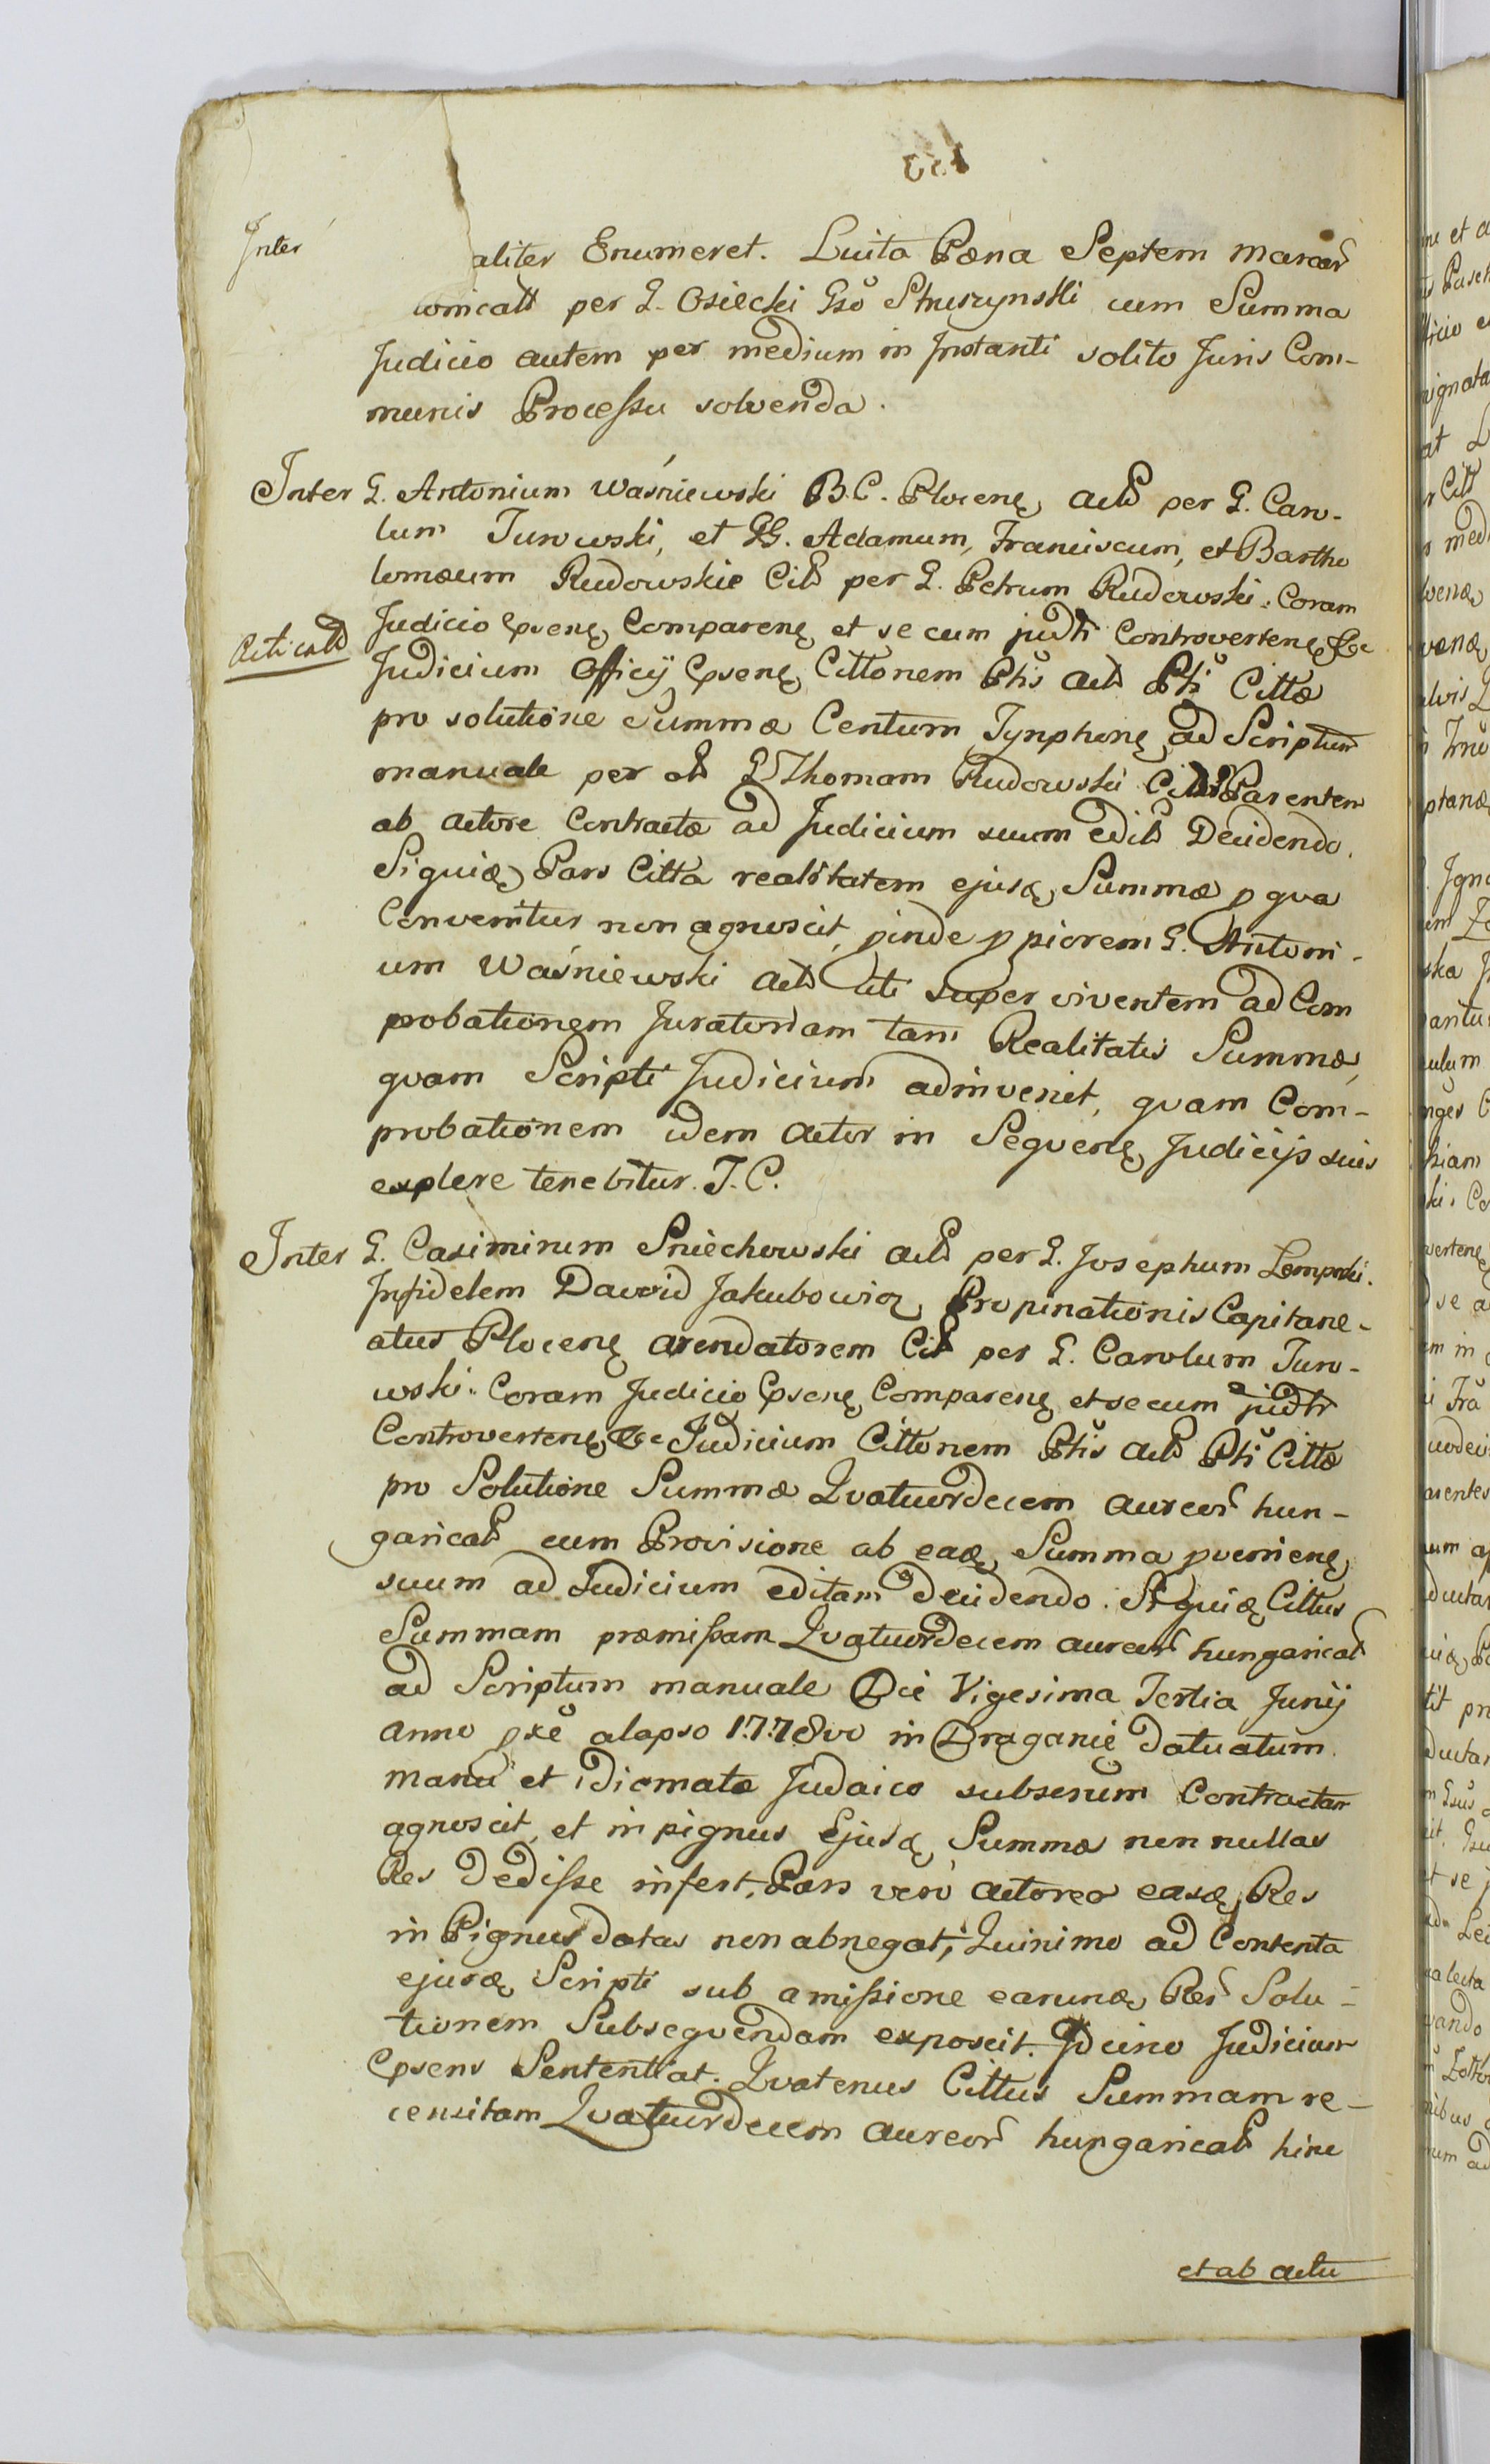 Inter
aliter Enumeret. Luita Pæna Septem marcar
conicatt per G. Osiecki Gso Struszynski cum Summa
Judicio autem per medium in Instanti solito Juris Com-
munis Processu solvenda.
Inter G. Antonium Waśniewski B.C. Plocenę actt per G. Caro-
lum Turowski, et GG. Adamum, Franciscum, et Bartho
lomæum Rudowskie Citt per G. Petrum Rudowski. Coram
Judicio Ppsenę Comparenę et se cum judtr Controvertenę &c
Acticatt
Judicium Officij Ppsenę Cittonem Ptis actt Pti Cittæ
pro solutione Summæ Centum Tynphonę ad Scriptum
manuale per ol G. Thomam Rudowski Parentem
ab actore Contractæ ad Judicium suum editt Decidendo.
Siquidę Pars Citta realitatem ejusdę Summæ p qua
Convenitur non agnoscit, pinde p piorem G. Antoni-
um Waśniewski actt uti super viventem ad Com
probationem Juratoriam tam Realitatis Summæ,
quam Scripti Judicium adinvenit, quam Com-
probationem idem actor in Sequenę Judicijs suis
explere tenebitur. T.C.
Inter G. Casimirum Sniechowski actt per G. Josephum Lempicki.
Infidelem Dawid Jakubowicz Propinationis Capitane-
atus Plocenę arendatorem Citt per G. Carolum Turo-
wski. Coram Judicio Ppsenę Comparenę et se cum judtr
Controvertenę &c Judicium Cittonem Ptis actt Pti Cittæ
pro Solutione Summæ Quatuordecem aureor hun-
garicatt cum Provisione ab eadę Summa pvenienę
suum ad Judicium editam decidendo. Siquidę Cittus
Summam præmissam Quatuordecem aureor hungaricatt
ad Scriptum manuale Die Vigesima Tertia Junij
anno pxe alapso 1778vo in Draganie datuatum
manu et idiomate Judaico subserum Contractam
agnoscit, et in pignus Ejusdę Summæ non nullas
Res Dedisse infert, Pars vero actorea easdę Res
in Pignus datas non abnegat, Quinimo ad Contenta
ejusdę Scripti sub amissione earundę Rer Solu-
tionem Subsequendam exposcit. Idcirco Judicium
Ppsens Sententiat. Quatenus Cittus Summam re-
censitam Quatuordecem aureor hungaricatt hinc
et ab actu